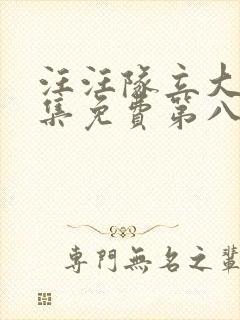 汪汪隊立大
集免費第八
專門無名之輩